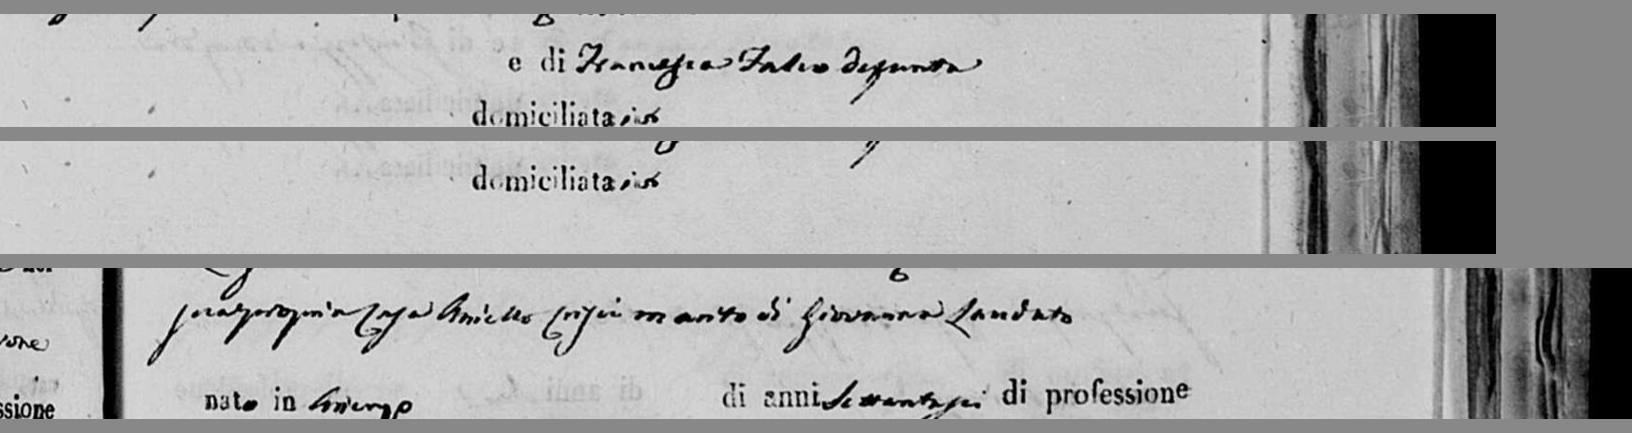 e di Francesca Falco defunta
domiciliata ivi
domiciliata ivi
sua propria casa Aniello Crisci marito di Giovanna Laudato
nato in di anni Settantasei di professione
ssione